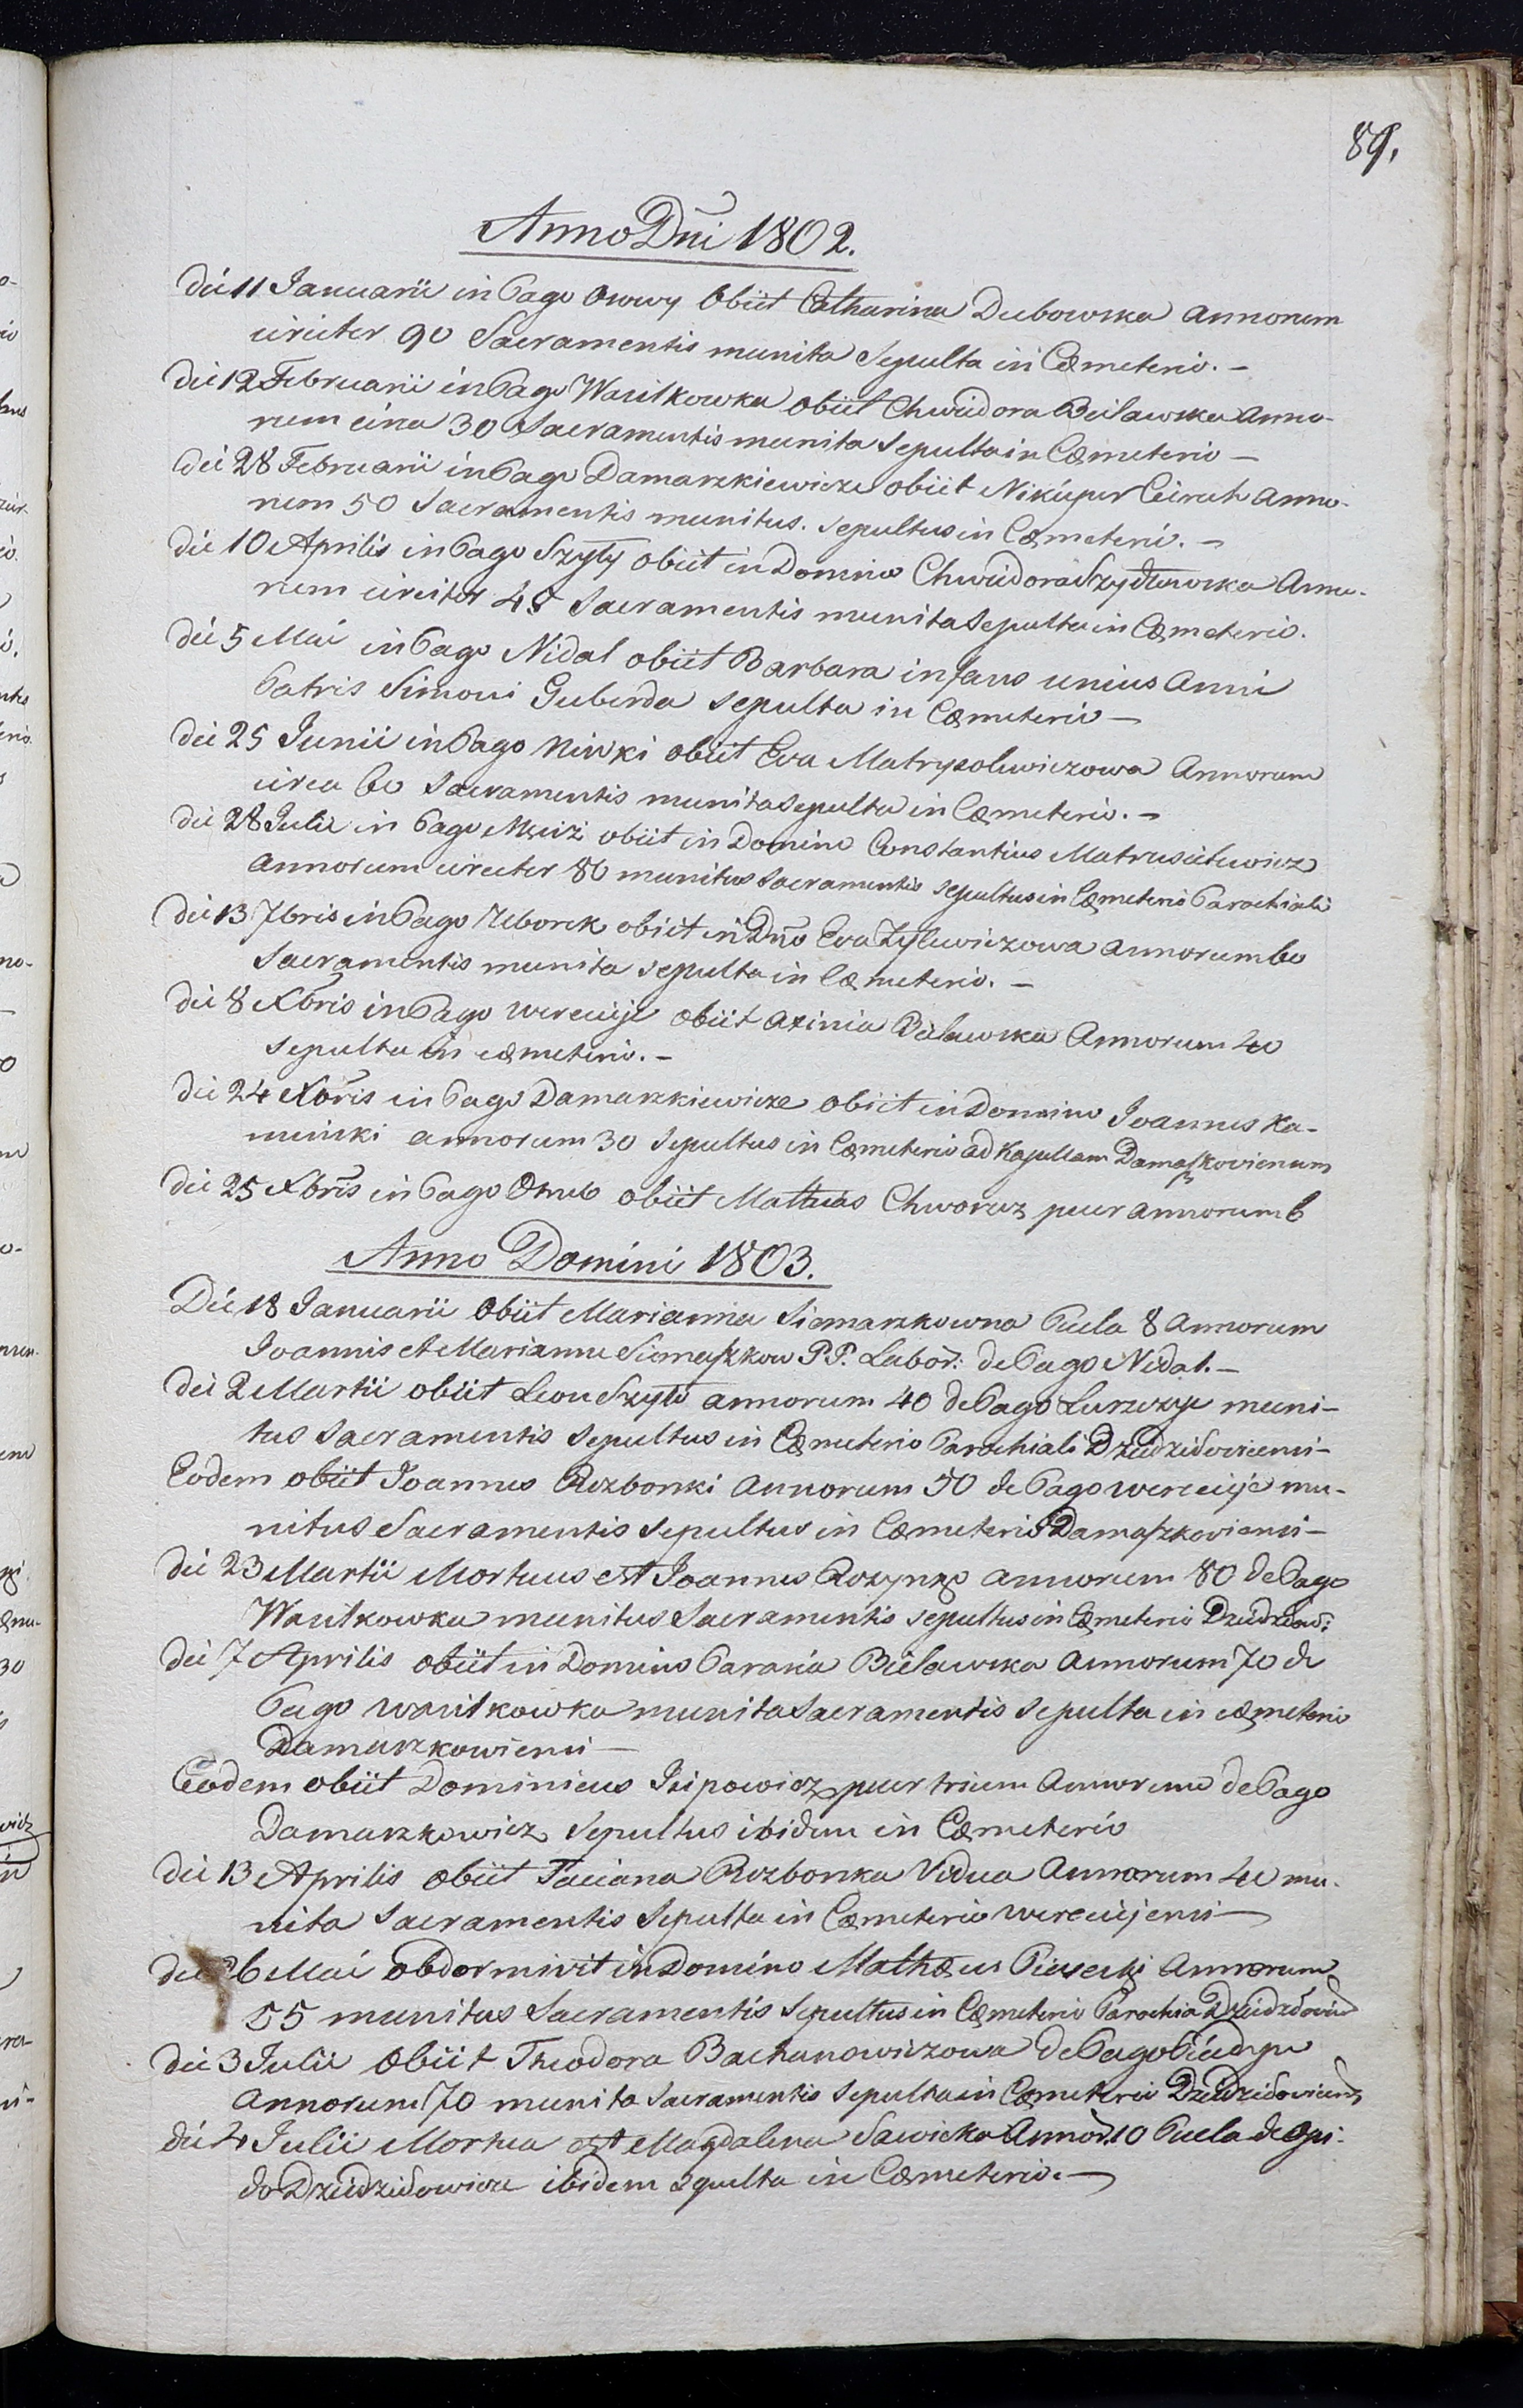 89.
Anno Dni 1802.
Die 11 Januarii in Pago Owwy Obiit Catharina Dubowska annorum
circiter 90 Sacramentis munita Sepulta in Cæmeterio. —
Die 12 Februarii in Pago Wasilkowka obiit Chwiedora Bielawska anno-
rum circa 30 Sacramentis munita Sepulta in Cæmeterio —
Die 28 Februarii in Pago Damaszkiewicze obiit Nikiper anno-
rum 50 Sacramentis munitus. Sepultus in Cæmeterio. —
Die 10 Aprilis in Pago Szyły obiit in Domino Chwiedora Szydłowska Anno-
rum circiter 48 Sacramentis munita Sepulta in Cæmeterio.
Die 5 Maii in Pago Nidal obiit Barbara infans unius anni
Patris Simoni Guberda sepulta in Cæmeterio —
Die 25 Junii in Pago Niwki obiit Eva Matrysolewiczowa annorum
circa 60 Sacramentis munita sepulta in Cæmeterio. —
Die 28 Julii in Pago obiit in Domino Constantius
Annorum circiter 80 munitus Sacramentis sepultus in Cæmeterio Parochiali
Die 13 7bris in Pago Uborek obiit in Dno Eva Zylewiczowa annorum 60
Sacramentis munita sepulta in Cæmeterio. —
Die 8 Xbris in Pago wereiije obiit Axinia Bielawska Annorum 40
Sepulta in cæmeterio. —
Die 24 Xbris in Pago Damaszkiewicze obiit in Domino Joannes Ka-
minski annorum 30 Sepultus in Cæmeterio ad Kapellam
Die 25 Xbris in Pago obiit Mathias Chworosz puer annorum 6
Anno Domini 1803.
Die 18 Januarii Obiit Marianna Siemaszkowna Puela 8 annorum
Joannis et Mariannæ Siemaszkow P.P. Labor: de Pago Nidal. —
Die 2 Martii obiit Leon Szyło annorum 40 de Pago muni-
tus Sacramentis Sepultus in Cæmeterio Parochiali Dziedzidoviensi —
Eodem obiit Joannes Rozbonki Annorum 50 de Pago wereiije mu-
nitus Sacramentis sepultus in Cæmeterio Damaszkoviensi —
Die 23 Martii Mortuus est Joannes annorum 80 de Pago
Wasilkowka munitus Sacramentis sepultus in Cæmeterio
Die 7 Aprilis obiit in Domino Parasia Bielawska Annorum 70 de
Pago wasilkowka munita Sacramentis Sepulta in cæmeterio
Damaszkowiensi —
Eodem obiit Dominicus Isipowicz puer trium Annorum de Pago
Damaszkowicz Sepultus ibidem in Cæmeterio
Die 13 Aprilis obiit Taciana Rozbonka Vidua Annorum 40 mu-
nita Sacramentis Sepulta in Cæmeterio wereiijensi —
Die 26 Maii obdormivit in Domino Mathæus Piasecki Annorum
55 munitus Sacramentis Sepultus in Cæmeterio Parochia
Die 3 Julii Obiit Theodora Bachanowiczowa de Pago
Annorum 70 munita Sacramentis Sepulta in Cæmeterio
die 4 Julii Mortua est Magdalena Sawicka Annor. 10 Puela de Opi-
do Dziedzidowicze ibidem sepulta in Cæmeterio. —